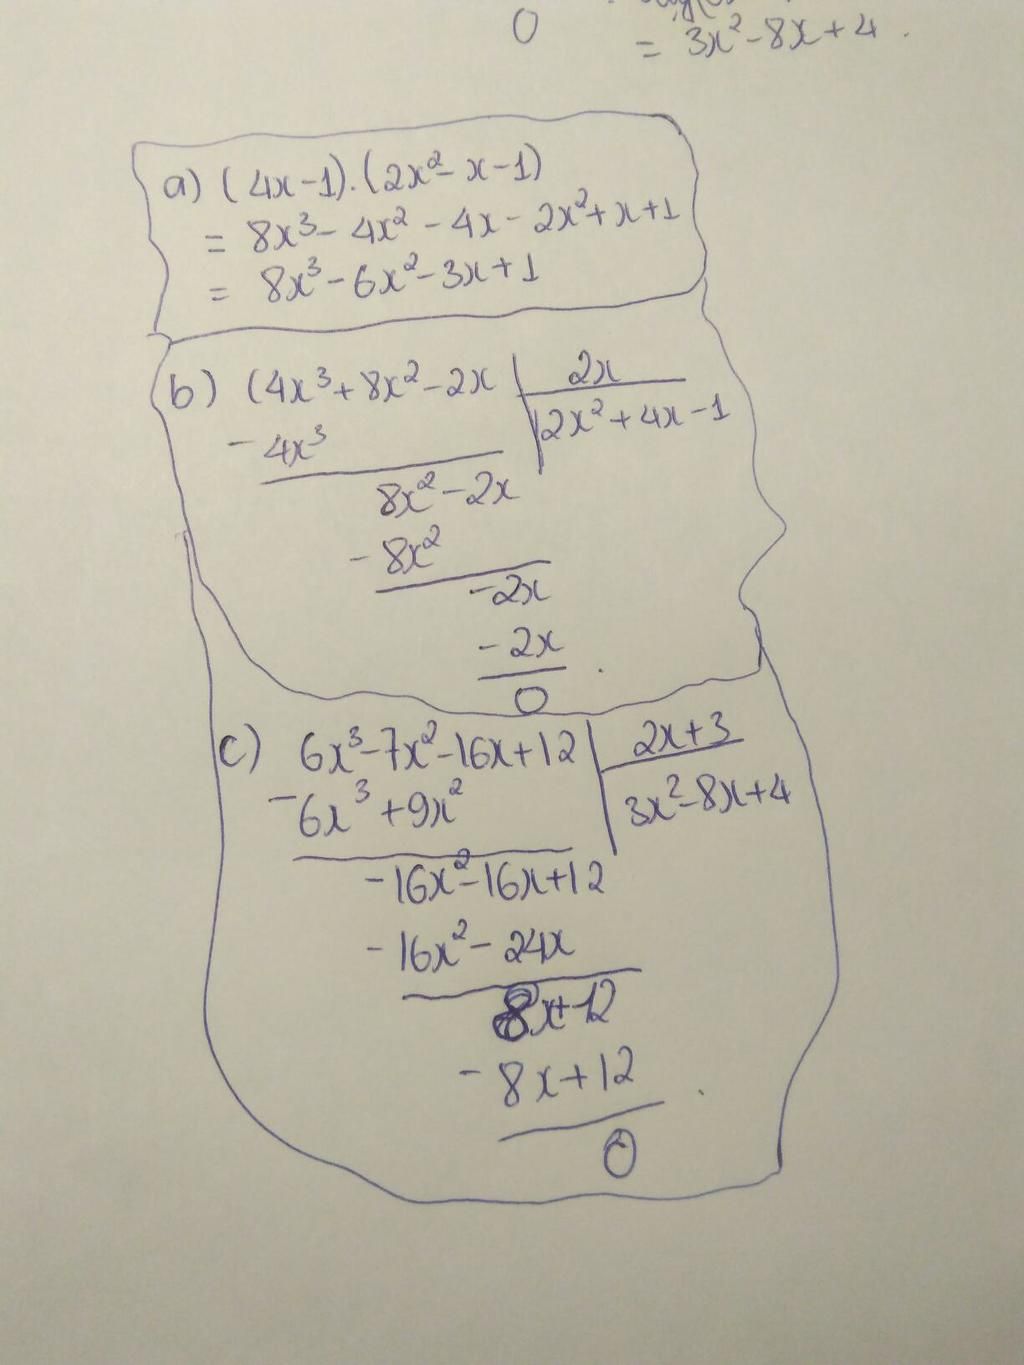 0
= 3x² - 8x + 4 .
a) (4x - 1).(2x² - x - 1)
= 8x³ - 4x² - 4x - 2x² + x + 1
= 8x³ - 6x² - 3x + 1
b) (4x³ + 8x² - 2x | 2x
- 4x³ | 2x² + 4x - 1
8x² - 2x
- 8x²
- 2x
- 2x
0 .
c) 6x³ - 7x² - 16x + 12 | 2x + 3
- 6x³ + 9x² | 3x² - 8x + 4
- 16x² - 16x + 12
- 16x² - 24x
8x + 12
- 8x + 12
0